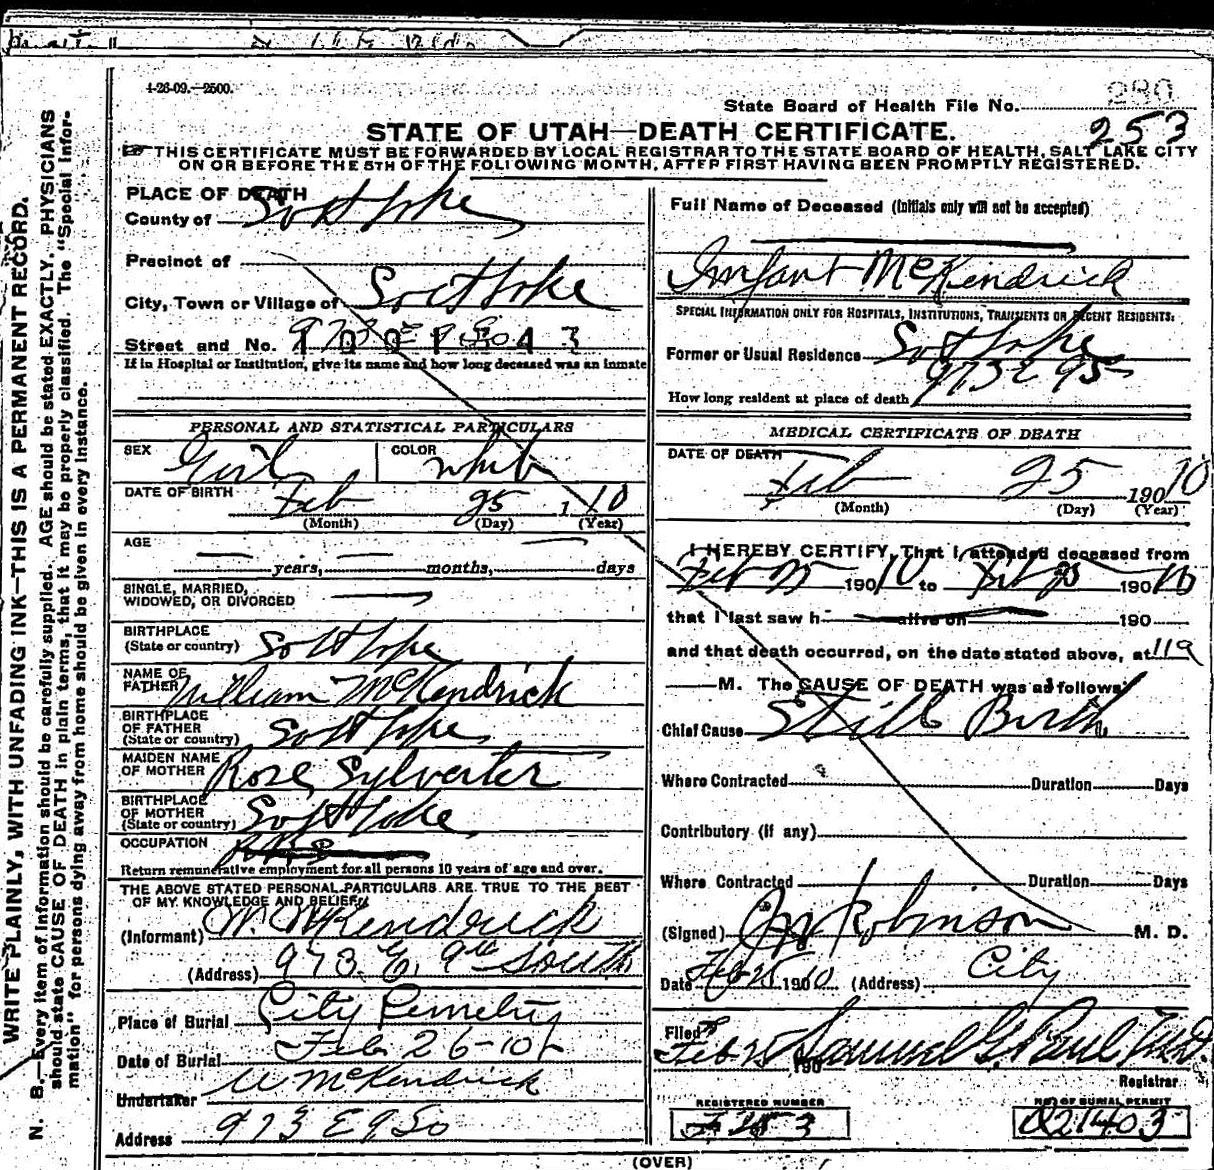 4-26-09.—2500.
290
State Board of Health File No.
253
STATE OF UTAH—DEATH CERTIFICATE.
THIS CERTIFICATE MUST BE FORWARDED BY LOCAL REGISTRAR TO THE STATE BOARD OF HEALTH, SALT LAKE CITY
ON OR BEFORE THE 5TH OF THE FOLLOWING MONTH, AFTER FIRST HAVING BEEN PROMPTLY REGISTERED.
WRITE PLAINLY, WITH UNFADING INK—THIS IS A PERMANENT RECORD.
N. B.—Every item of information should be carefully supplied. AGE should be stated EXACTLY. PHYSICIANS
should state CAUSE OF DEATH in plain terms, that it may be properly classified. The "Special Infor-
mation" for persons dying away from home should be given in every instance.
PLACE OF DEATH
County of Salt Lake
Precinct of
City, Town or Village of Salt Lake
Street and No. 973 E 9 So
If in Hospital or Institution, give its name and how long deceased was an inmate
PERSONAL AND STATISTICAL PARTICULARS
SEX Girl COLOR white
DATE OF BIRTH Feb 25 1910
(Month) (Day) (Year)
AGE
years, months, days
SINGLE, MARRIED,
WIDOWED, OR DIVORCED
BIRTHPLACE
(State or country) Salt Lake
NAME OF
FATHER William McKendrick
BIRTHPLACE
OF FATHER
(State or country) Salt Lake
MAIDEN NAME
OF MOTHER Rose Sylvester
BIRTHPLACE
OF MOTHER
(State or country) Salt Lake
OCCUPATION
Return remunerative employment for all persons 10 years of age and over.
THE ABOVE STATED PERSONAL PARTICULARS ARE TRUE TO THE BEST
OF MY KNOWLEDGE AND BELIEF
(Informant) W. McKendrick
(Address) 973 E. 9th South
Place of Burial City Cemetry
Date of Burial Feb 26-10
Undertaker W McKendrick
Address 973 E 9 So
Full Name of Deceased (Initials only will not be accepted)
Infant McKendrick
SPECIAL INFORMATION ONLY FOR HOSPITALS, INSTITUTIONS, TRANSIENTS OR RECENT RESIDENTS:
Former or Usual Residence Salt Lake
973 E 9 S
How long resident at place of death
MEDICAL CERTIFICATE OF DEATH
DATE OF DEATH
Feb 25 190 10
(Month) (Day) (Year)
I HEREBY CERTIFY, That I attended deceased from
Feb 25 190 10 to Feb 25 190 10
that I last saw h alive on 190
and that death occurred, on the date stated above, at 11 9
M. The CAUSE OF DEATH was as follows
Chief Cause Still Birth
Where Contracted Duration Days
Contributory (if any)
Where Contracted Duration Days
(Signed) Robinson M. D.
Date Feb 25 1910 (Address) City
Filed
Feb 25 190 Samuel G. Paul M.D.
Registrar
REGISTERED NUMBER
F 253
NO. OF BURIAL PERMIT
Q21403
(OVER)